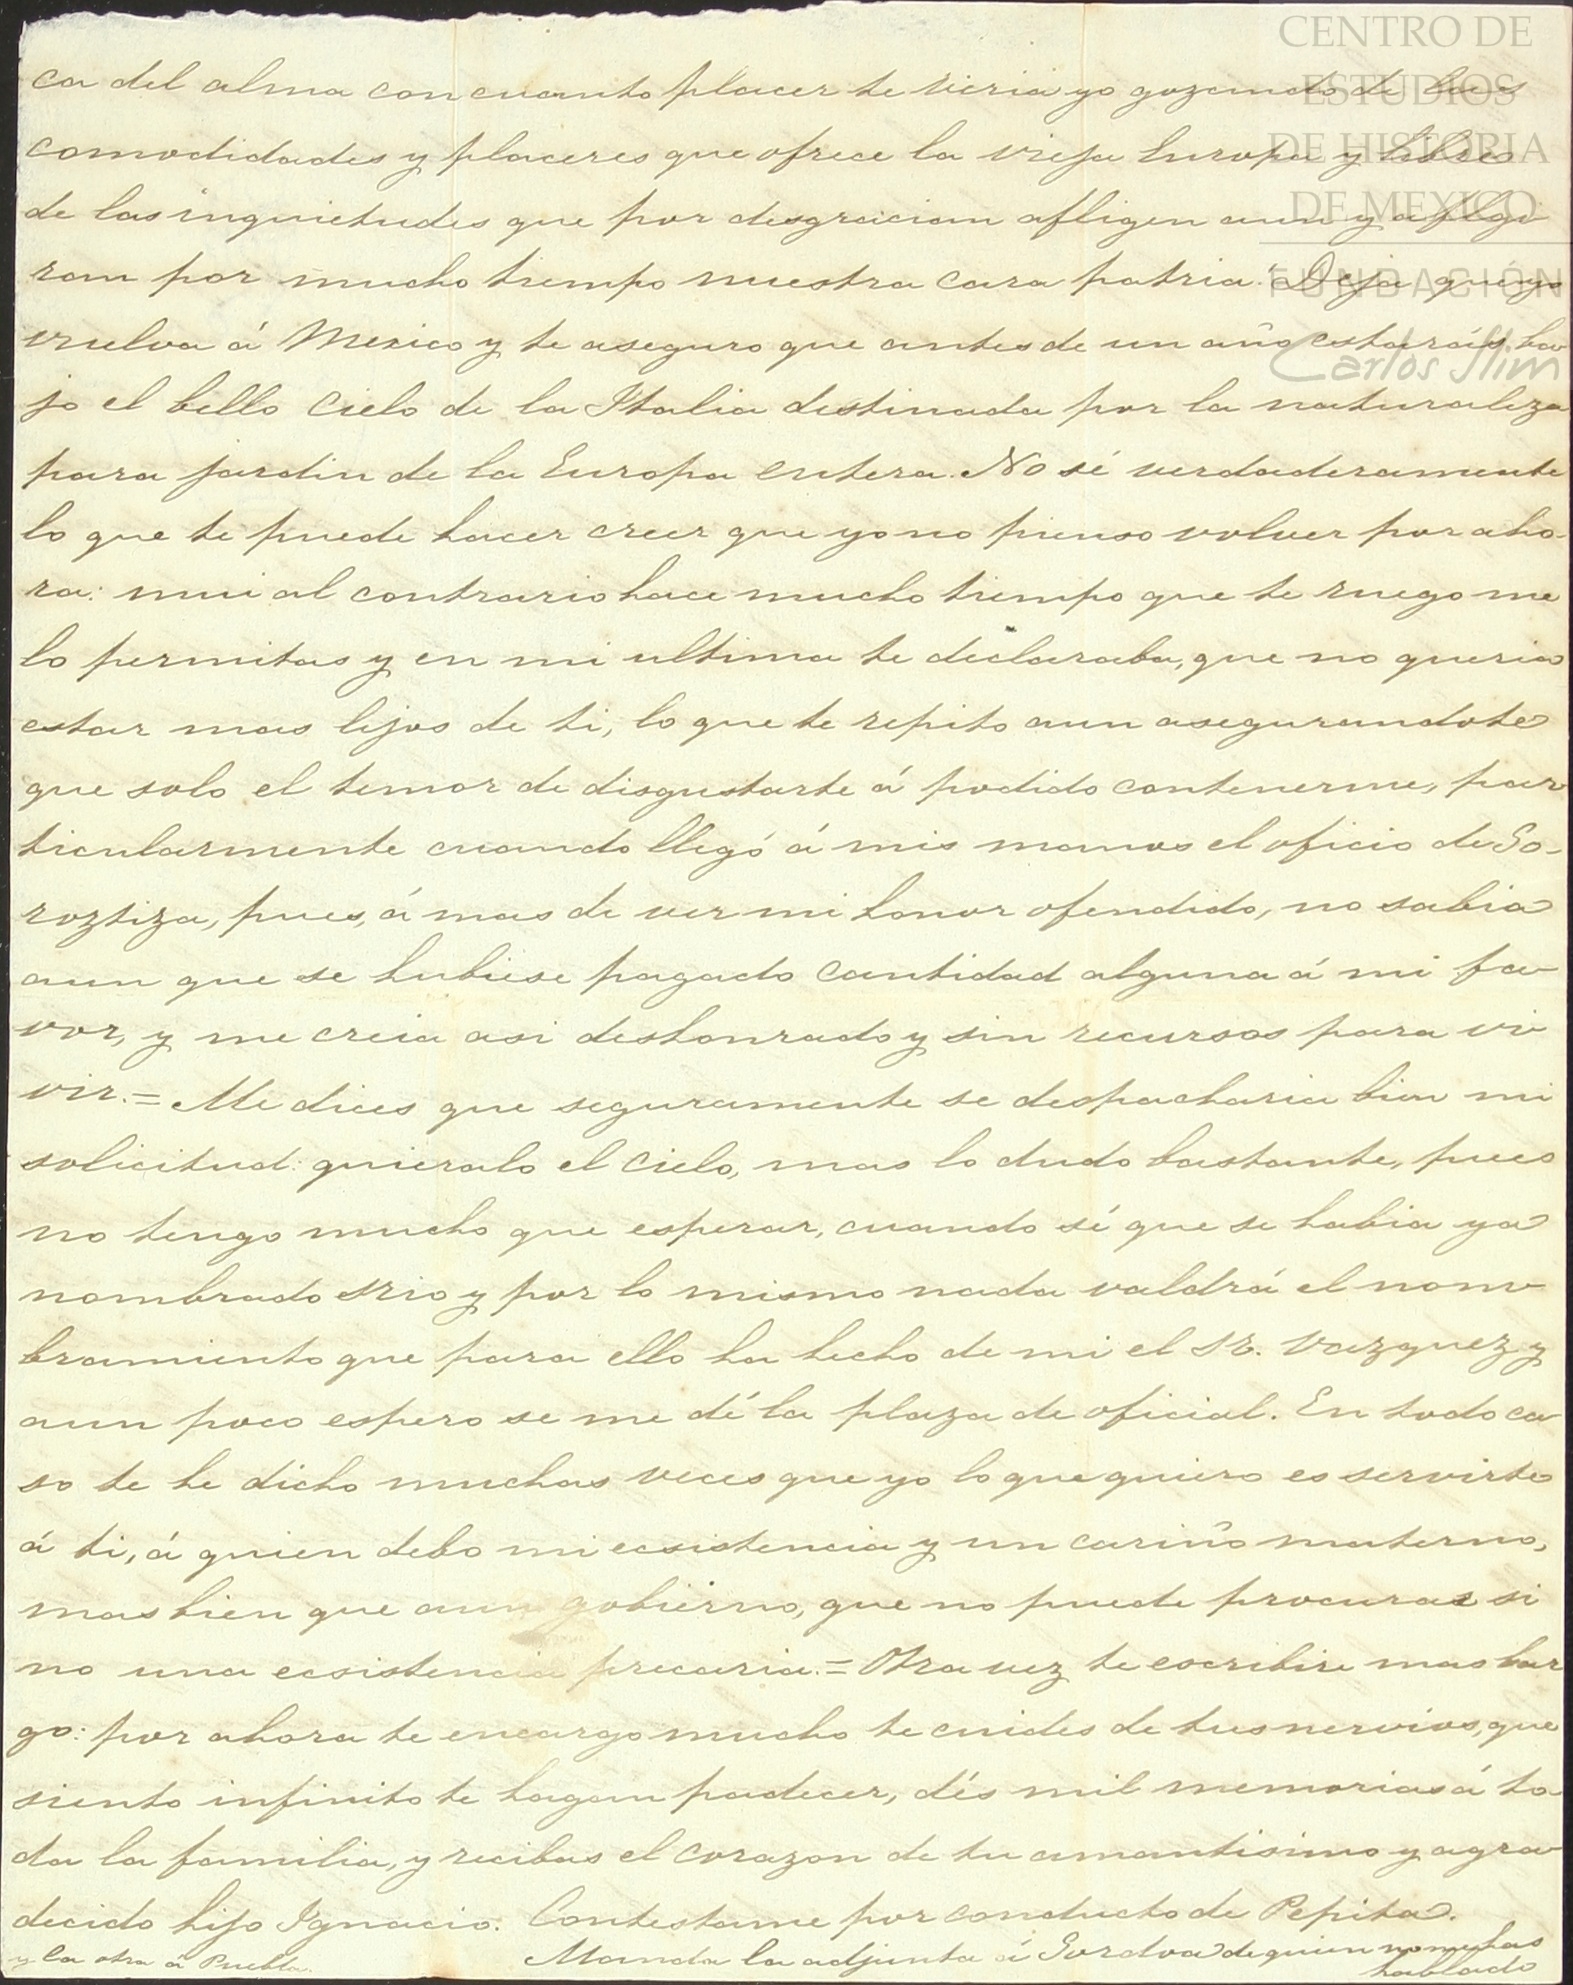 CENTRO DE
ESTUDIOS
DE HISTORIA
DE MEXICO
FUNDACIÓN
Carlos Slim
ca del alma con cuanto placer te veria yo gozando de las
comodidades y placeres que ofrece la vieja Europa y libre
de las inquietudes que por desgracian afligen aun y afligi
ran por mucho tiempo nuestra cara patria! Deja que yo
vuelva á Mexico y te aseguro que antes de un año estaráis ba
jo el bello cielo de la Italia destinada por la naturaleza
para jardin de la Europa entera. No sé verdaderamente
lo que te puede hacer creer que yo no pienso volver por aho-
ra: mui al contrario hace mucho tiempo que te ruego me
lo permitas y en mi ultima te declaraba, que no queria
estar mas lejos de ti, lo que te repito aun asegurandote
que solo el temor de disgustarte á podido contenerme, par
ticularmente cuando llegó á mis manos el oficio de Go-
roztiza, pues, á mas de ver mi honor ofendido, no sabia
aun que se hubiese pagado cantidad alguna á mi fa
vor, y me creia asi deshonrado y sin recursos para vi
vir.= Me dices que seguramente se despacharia bien mi
solicitud: quieralo el cielo, mas lo dudo bastante, pues
no tengo mucho que esperar, cuando sé que se habia ya
nombrado srio y por lo mismo nada valdrá el nom
bramiento que para ello ha hecho de mi el Sr. Vazquez y
aun poco espero se me dé la plaza de oficial. En todo ca
so te he dicho muchas veces que yo lo que quiero es servirte
á ti, á quien debo mi ecsistencia y un cariño materno,
mas bien que aun gobierno, que no puede procurar si
no una ecsistencia precaria.= Otra vez te escribire mas lar
go: por ahora te encargo mucho te cuides de tus nervios, que
siento infinito te hagan padecer, dés mil memorias á to
da la familia, y recibas el corazon de tu amantisimo y agra
decido hijo Ignacio. Contestame por conducto de Pepita.
Manda la adjunta á Gordoa de quien no me has
hablado
y la otra á Puebla.